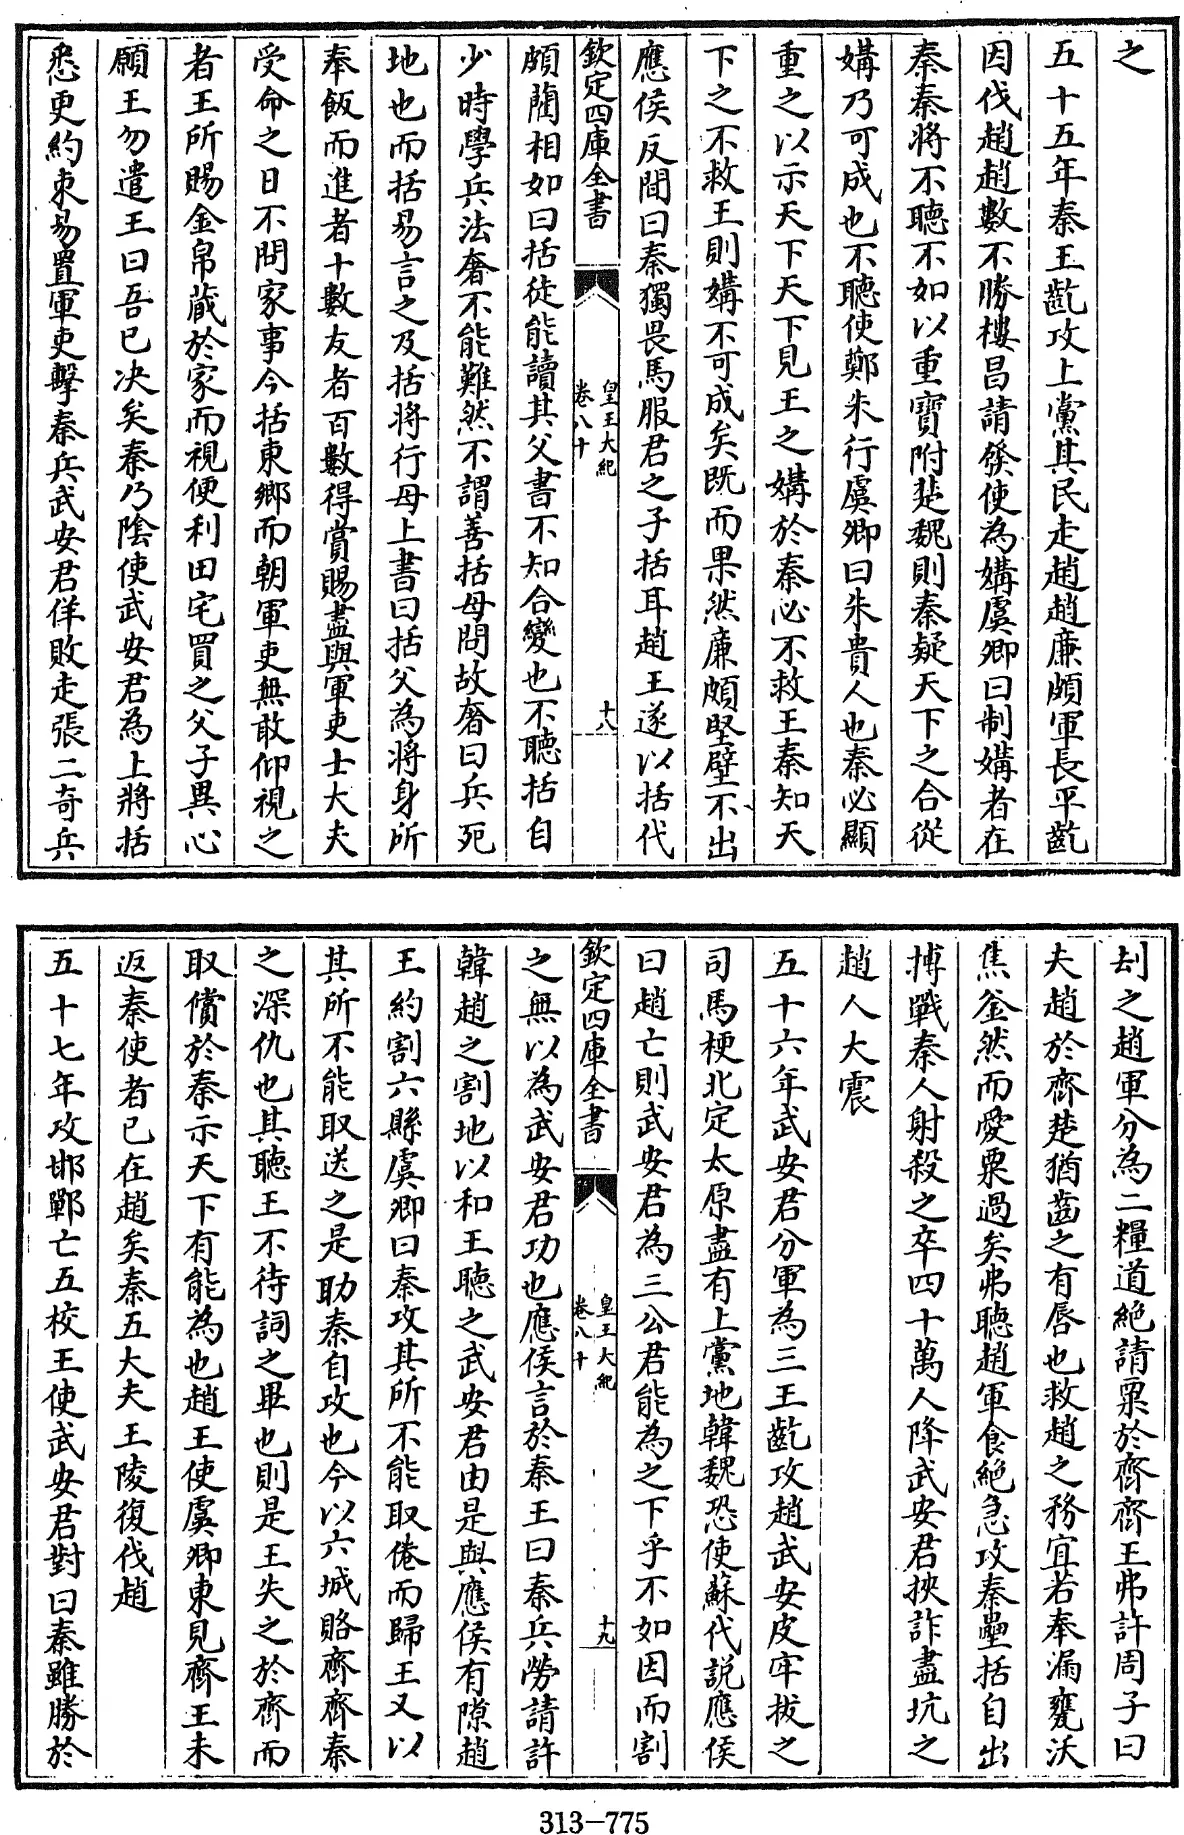 之
五十五年秦王齕攻上黨其民走趙趙廉頗軍長平齕
因伐趙趙數不勝樓昌請發使為媾虞卿曰制媾者在
秦秦將不聽不如以重寶附楚魏則秦疑天下之合從
媾乃可成也不聽使鄭朱行虞卿曰朱貴人也秦必顯
重之以示天下天下見王之媾於秦必不救王秦知天
下之不救王則媾不可成矣既而果然廉頗堅壁不出
應侯反間曰秦獨畏馬服君之子括耳趙王遂以括代
欽定四庫全書
皇王大紀
卷八十
十八
頗藺相如曰括徒能讀其父書不知合變也不聽括自
少時學兵法奢不能難然不謂善括母問故奢曰兵死
地也而括易言之及括將行母上書曰括父為將身所
奉飯而進者十數友者百數得賞賜盡與軍吏士大夫
受命之日不問家事今括東鄉而朝軍吏無敢仰視之
者王所賜金帛藏於家而視便利田宅買之父子異心
願王勿遣王曰吾已决矣秦乃陰使武安君為上將括
悉更約束易置軍吏擊秦兵武安君佯敗走張二奇兵
刦之趙軍分為二糧道絶請粟於齊齊王弗許周子曰
夫趙於齊楚猶齒之有唇也救趙之務宜若奉漏甕沃
焦釜然而愛粟過矣弗聽趙軍食絶急攻秦壘括自出
搏戰秦人射殺之卒四十萬人降武安君挾詐盡坑之
趙人大震
五十六年武安君分軍為三王齕攻趙武安皮牢拔之
司馬梗北定太原盡有上黨地韓魏恐使蘇代説應侯
曰趙亡則武安君為三公君能為之下乎不如因而割
欽定四庫全書
皇王大紀
卷八十
十九
之無以為武安君功也應侯言於秦王曰秦兵勞請許
韓趙之割地以和王聽之武安君由是與應侯有隙趙
王約割六縣虞卿曰秦攻其所不能取倦而歸王又以
其所不能取送之是助秦自攻也今以六城賂齊齊秦
之深仇也其聽王不待詞之畢也則是王失之於齊而
取償於秦示天下有能為也趙王使虞卿東見齊王未
返秦使者已在趙矣秦五大夫王陵復伐趙
五十七年攻邯鄲亡五校王使武安君對曰秦雖勝於
313-775